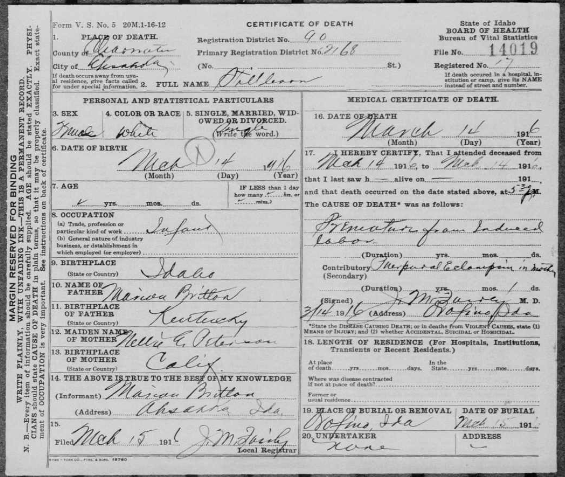 Form V. S. No. 5 20M.1-16-12
CERTIFICATE OF DEATH
State of Idaho
BOARD OF HEALTH
Bureau of Vital Statistics
1. PLACE OF DEATH.
Registration District No. 90
County of
Primary Registration District No. 2168
File No. 14019
City of Ahsahka
(No. St.)
Registered No. 17
If death occurs away from usual residence, give facts called for under special information.
2. FULL NAME
If death occurred in a hospital, institution or camp, give its NAME instead of street and number.
PERSONAL AND STATISTICAL PARTICULARS
3. SEX
4. COLOR OR RACE
5. SINGLE, MARRIED, WIDOWED OR DIVORCED.
(Write the word.)
Female White Single
6. DATE OF BIRTH
Mch 14 1916
(Month) (Day) (Year)
7. AGE
IF LESS than 1 day
how many hrs. or
mins.?
yrs. mos. ds.
8. OCCUPATION
(a) Trade, profession or
particular kind of work Infant
(b) General nature of industry
business, or establishment in
which employed (or employer)
9. BIRTHPLACE
(State or Country) Idaho
10. NAME OF
FATHER Marion Britton
11. BIRTHPLACE
OF FATHER Kentucky
(State or Country)
12. MAIDEN NAME
OF MOTHER Nellie E. Peterson
13. BIRTHPLACE
OF MOTHER Calif
(State or Country)
14. THE ABOVE IS TRUE TO THE BEST OF MY KNOWLEDGE
(Informant) Marion Britton
(Address) Ahsahka Ida.
15.
Filed Mch 15 1916 J. M. Fairly
Local Registrar
MEDICAL CERTIFICATE OF DEATH.
16. DATE OF DEATH
March 14 1916
(Month) (Day) (Year)
17. I HEREBY CERTIFY, That I attended deceased from
Mch 14 191 to Mch 14 191
that I last saw h alive on 191
and that death occurred on the date stated above, at
The CAUSE OF DEATH* was as follows:
Premature from Induced
labor.
(Duration) yrs. mos. ds.
Contributory Puerperal Eclampsia in mother
(Secondary)
(Duration) yrs. mos. 1 ds.
(Signed) J. M. Fairly M. D.
3/14 1916 Orofino Ida
*State the DISEASE CAUSING DEATH; or in deaths from VIOLENT CAUSES, state (1) MEANS OF INJURY; and (2) whether ACCIDENTAL, SUICIDAL or HOMICIDAL.
18. LENGTH OF RESIDENCE (For Hospitals, Institutions, Transients or Recent Residents.)
At place of death yrs. mos. days. In the State yrs. mos. days.
Where was disease contracted
if not at place of death?
Former or
usual residence
19. PLACE OF BURIAL OR REMOVAL
DATE OF BURIAL
Orofino, Ida Mch 191
20. UNDERTAKER
ADDRESS
None
MARGIN RESERVED FOR BINDING
WRITE PLAINLY, WITH UNFADING INK—THIS IS A PERMANENT RECORD.
N. B.—Every item of information should be carefully supplied. AGE should be stated EXACTLY. PHYSICIANS should state CAUSE OF DEATH in plain terms, so that it may be properly classified. Exact statement of OCCUPATION is very important. See instructions on back of certificate.